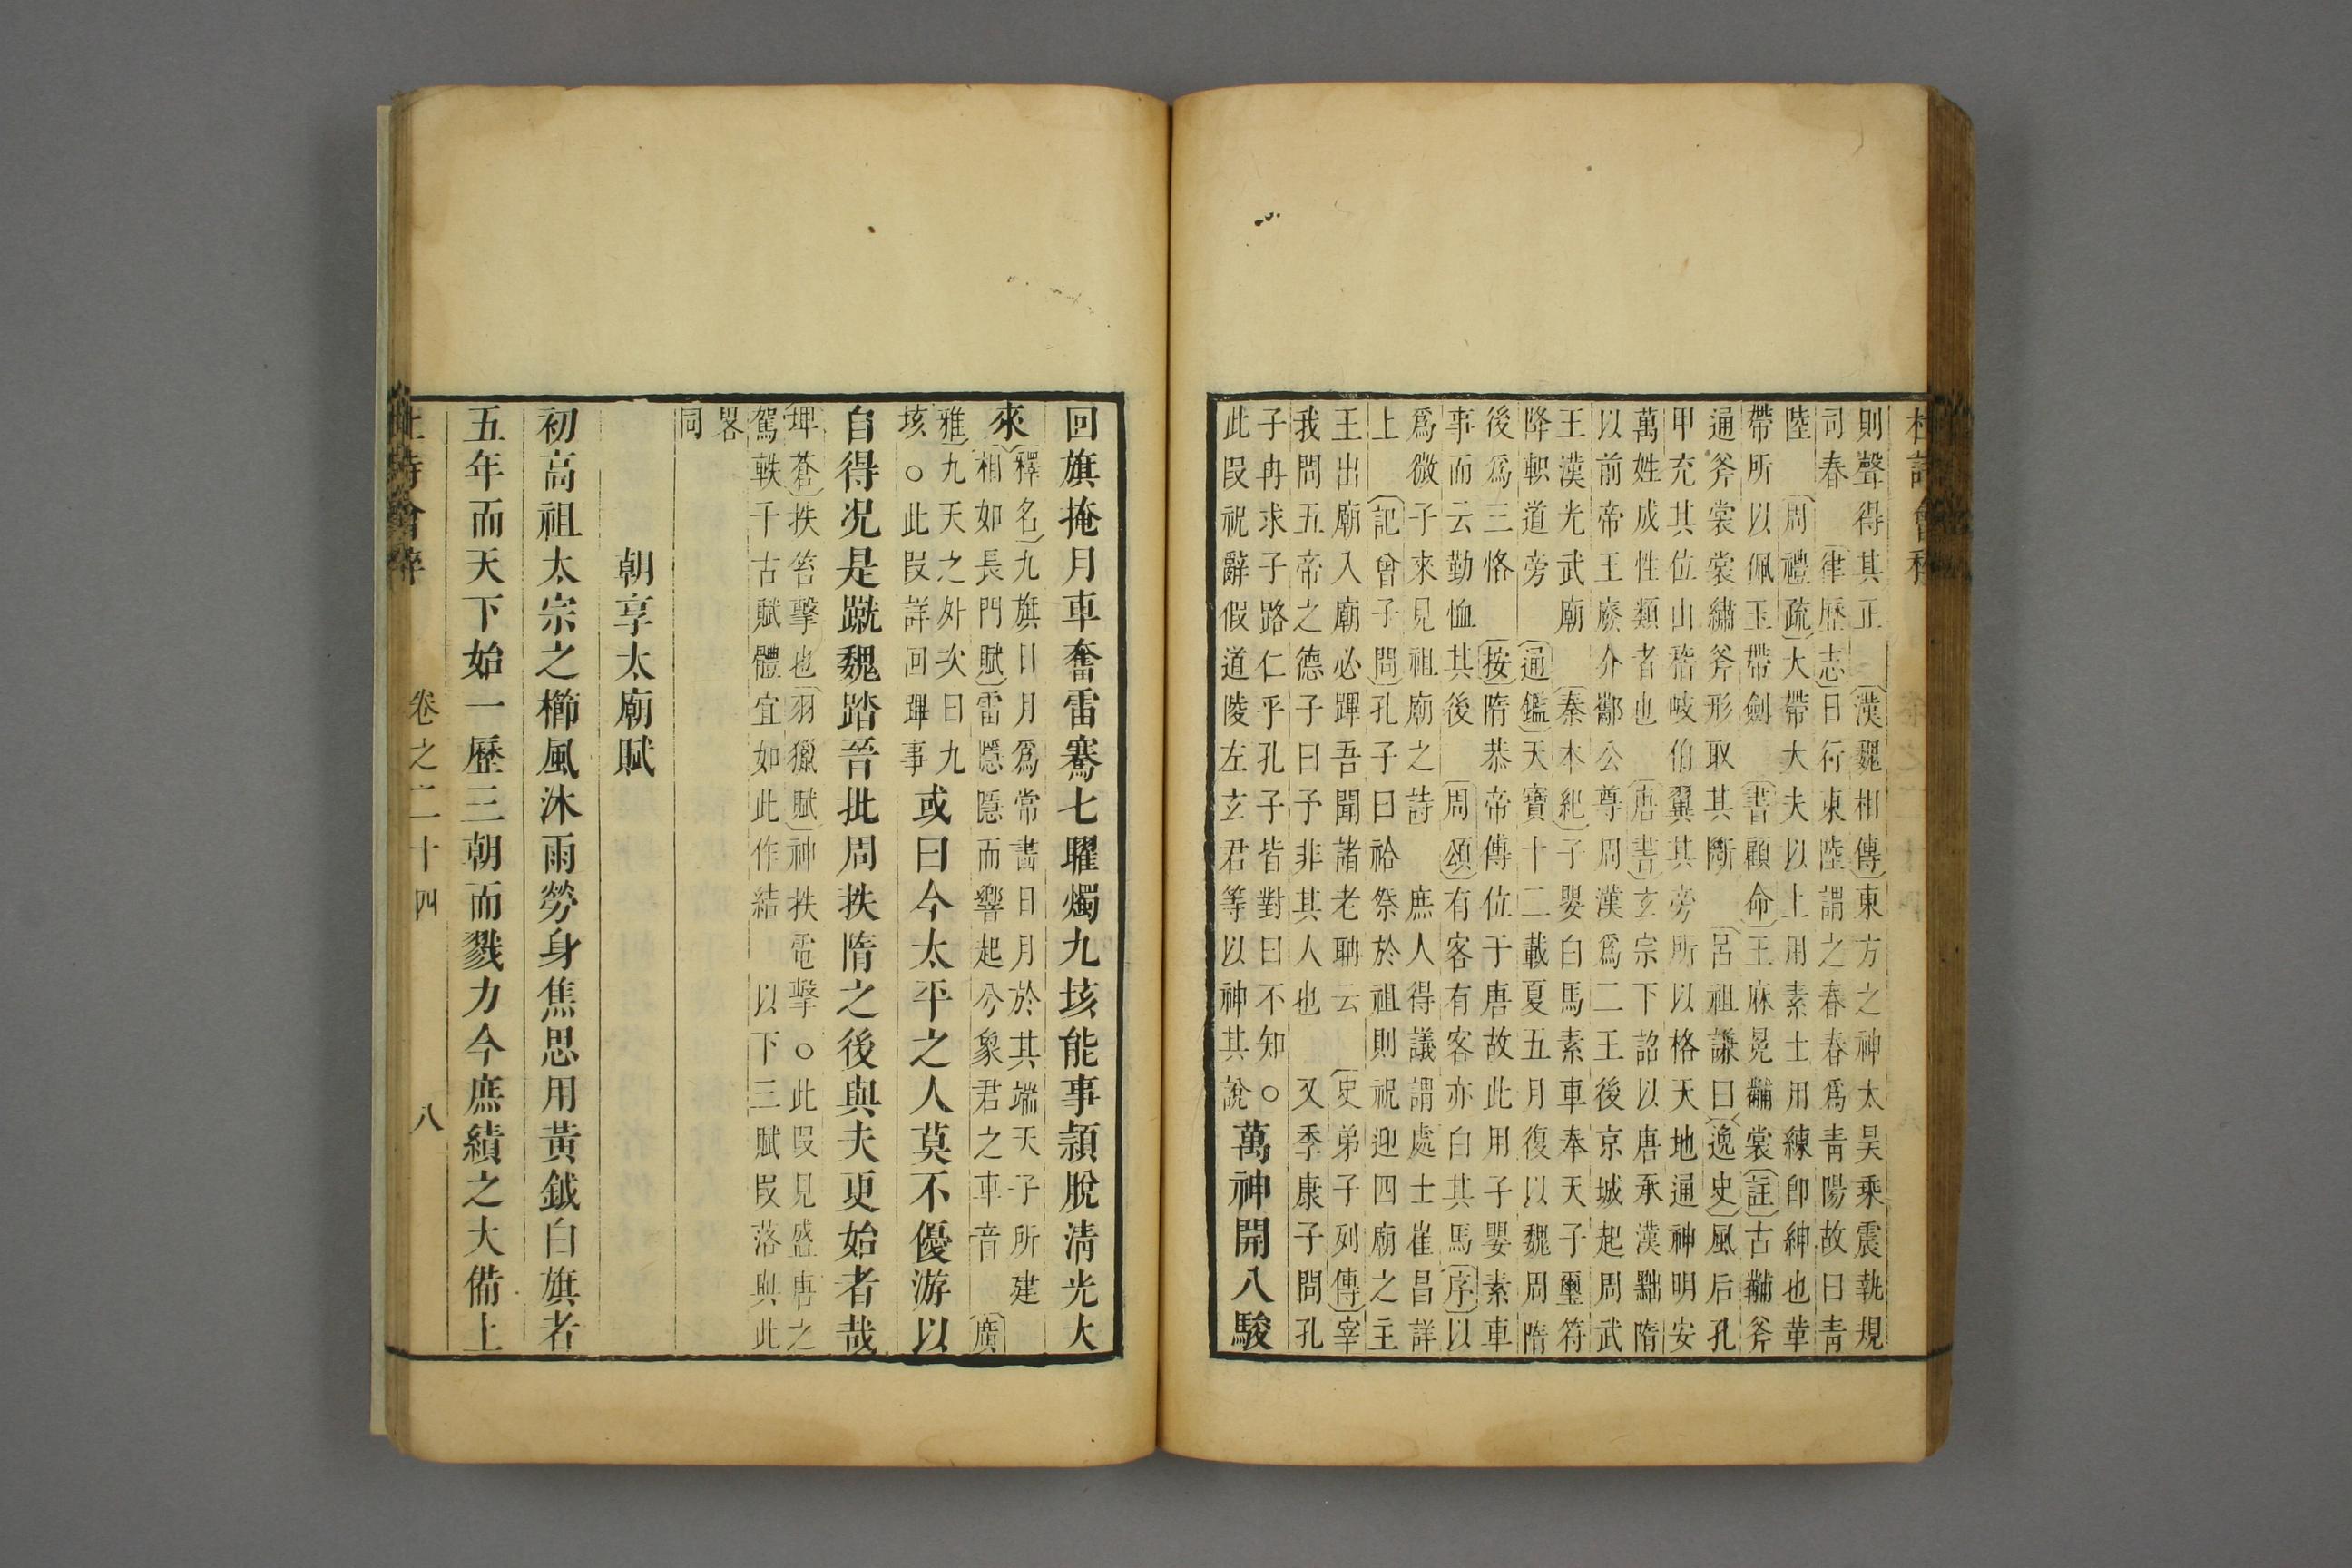 杜詩會稡
則聲得其正 漢魏相傳東方之神太昊乘震執規
司春 律歷志日行東陸謂之春春爲青陽故曰青
陸 周禮疏大帶大夫以上用素士用練卽紳也革
帶所以佩玉帶劍 書顧命王麻冕黼裳註古黼斧
通斧裳裳繡斧形取其斷 呂祖謙曰逸史風后孔
甲充其位山稽岐伯翼其旁所以格天地通神明安
萬姓成性類者也 唐書玄宗下詔以唐承漢黜隋
以前帝王廢介酅公尊周漢爲二王後京城起周武
王漢光武廟 秦本紀子嬰白馬素車奉天子璽符
降軹道旁 通鑑天寶十二載夏五月復以魏周隋
後爲三恪 按隋恭帝傳位于唐故此用子嬰素車
事而云勤恤其後 周頌有客有客亦白其馬序以
爲微子來見祖廟之詩 庶人得議謂處士崔昌詳
上 記曾子問孔子曰祫祭於祖則祝迎四廟之主
王出廟入廟必蹕吾聞諸老聃云 史弟子列傳宰
我問五帝之德子曰予非其人也 又季康子問孔
子冉求子路仁乎孔子皆對曰不知○
此段祝辭假道陵左玄君等以神其說 萬神開八駿
回旗掩月車奮雷騫七曜燭九垓能事頴脫淸光大
來 釋名九旗日月爲常畵日月於其端天子所建
相如長門賦雷隱隱而響起兮象君之車音 廣
雅九天之外次曰九
垓○此段詳回蹕事 或曰今太平之人莫不優游以
自得況是蹴魏踏晉批周抶隋之後與夫更始者哉
埤蒼抶笞擊也羽獵賦神抶電擊○此段見盛唐之
駕軼千古賦體宜如此作結 以下三賦段落與此
畧
同
朝享太廟賦
初高祖太宗之櫛風沐雨勞身焦思用黃鉞白旗者
五年而天下始一歷三朝而戮力今庶績之大備上
杜詩會稡 卷之二十四 八